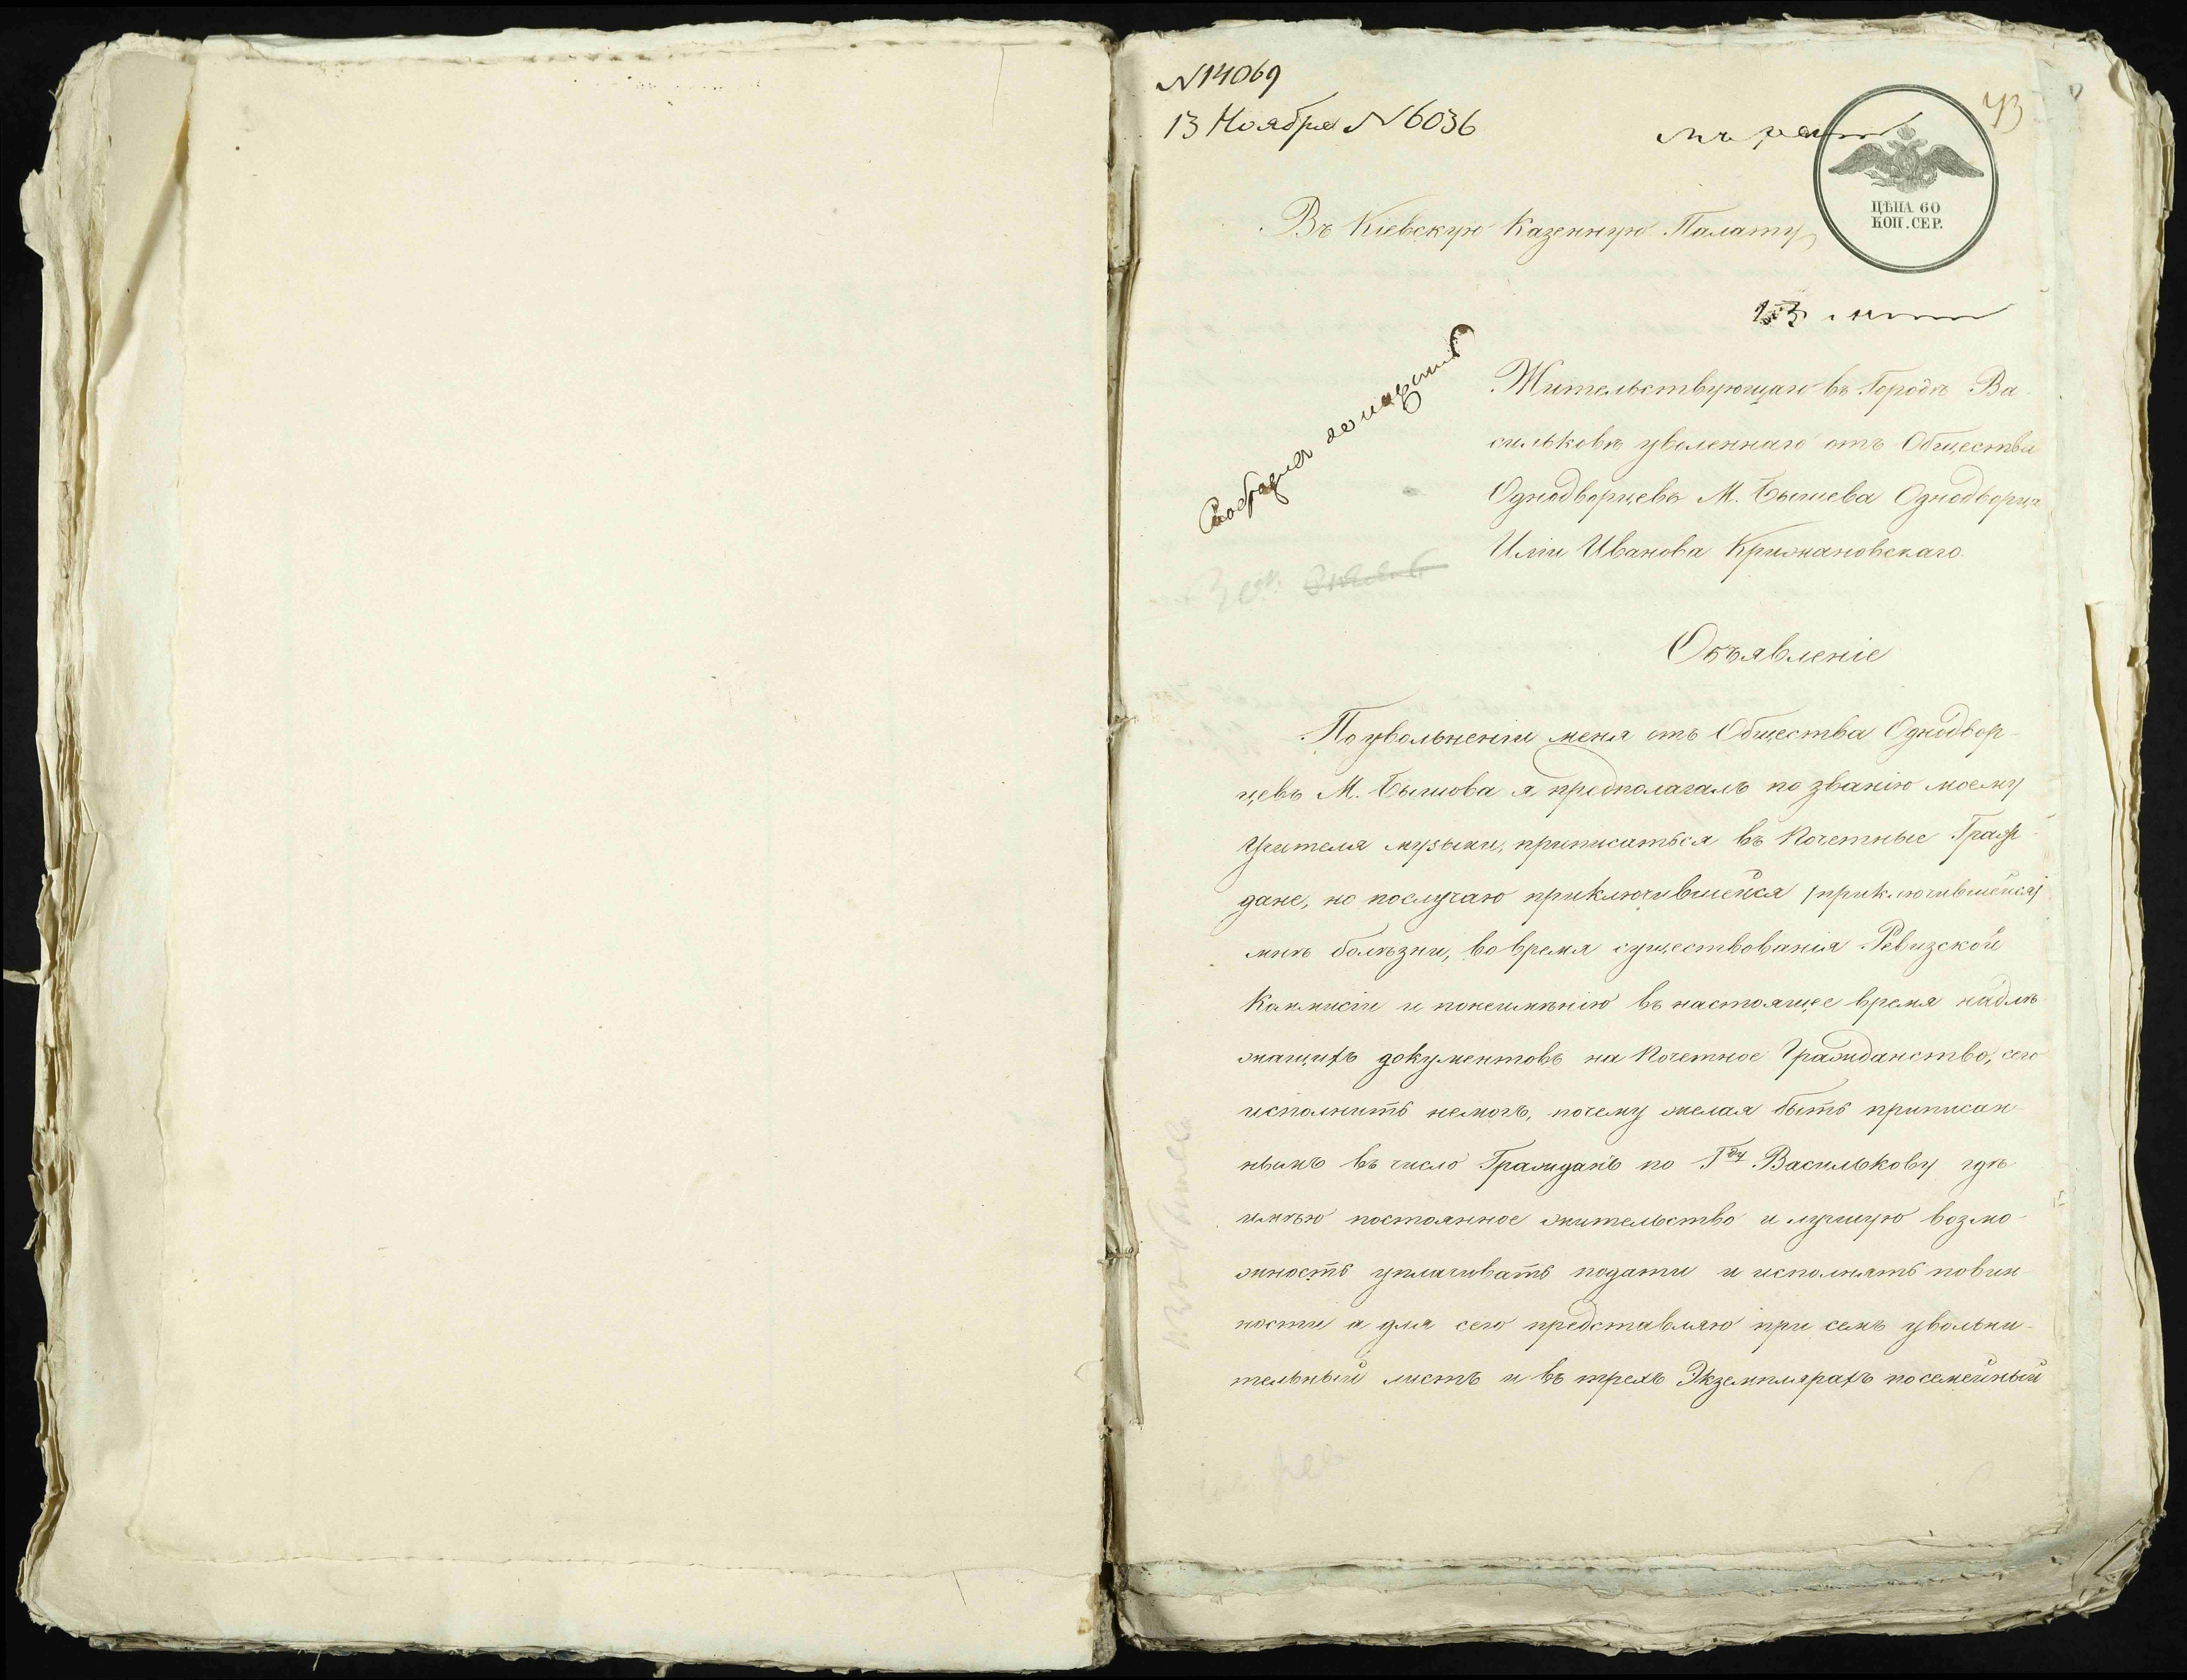 N 14069
13 Ноября N 6036
43
ЦѢНА 60
КОП. СЕР.
Въ Кіевскую Казенную Палату
13
Жительствующаго въ Городѣ Ва
сильковѣ уволеннаго отъ Общества
Однодворцевъ М. Бышева Однодворца
Иліи Иванова Крижановскаго
Объявленіе
По увольненіи меня отъ Общества Однодвор-
цевъ М. Бышова я предполагалъ по званію моему
Учителя музыки, приписаться въ Почетные Граж-
дане, но послучаю приключившейся /приключившейся/
мнѣ болѣзни, во время существованія Ревизской
Коммисіи и понеимѣнію въ настоящее время надлѣ
жащихъ документовъ на Почетное Гражданство, сего
исполнить немогъ, почему желая быть приписан-
нымъ въ число Гражданъ по Г-ду Василькову гдѣ
имѣю постоянное жительство и лучшую возмо-
жность уплачивать подати и исполнять повин
ности а для сего представляю при семъ увольни-
тельный листъ и въ трехъ Экземплярахъ посемейный